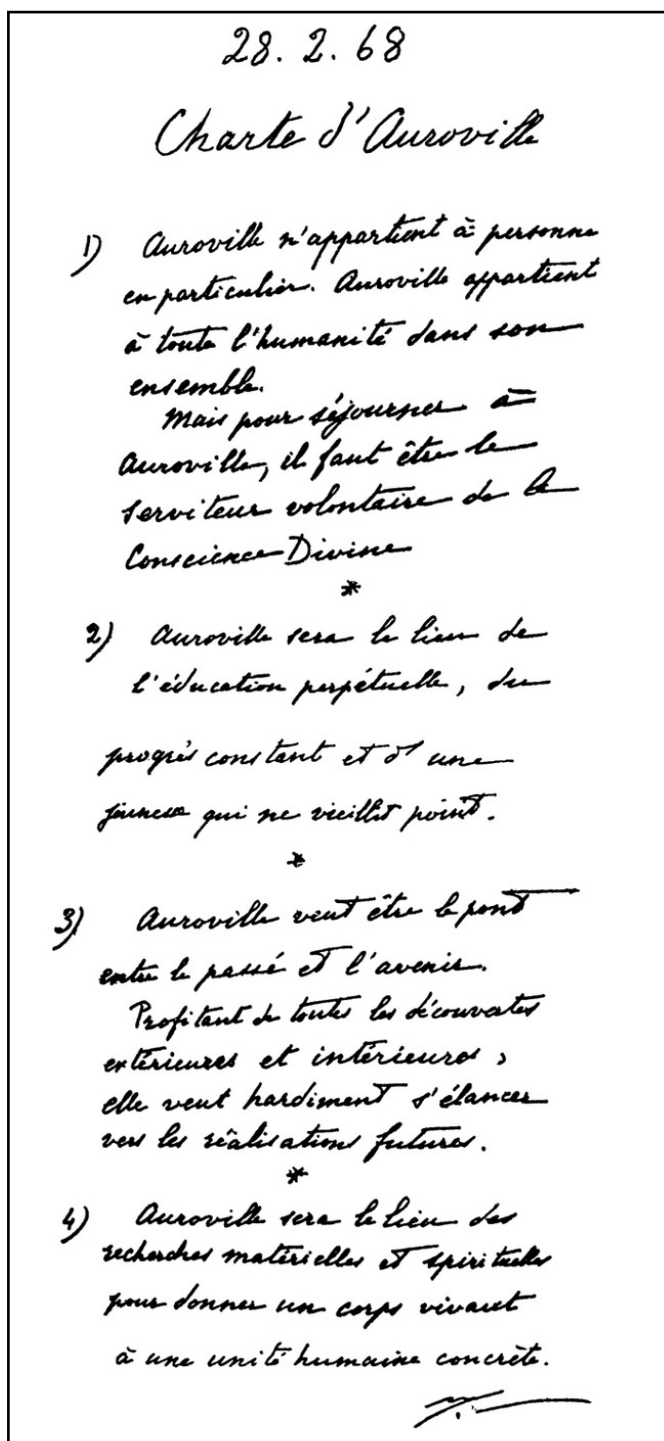 28. 2. 68
Charte d'Auroville
1) Auroville n'appartient à personne
en particulier. Auroville appartient
à toute l'humanité dans son
ensemble.
Mais pour séjourner à
Auroville, il faut être le
serviteur volontaire de la
Conscience Divine
*
2) Auroville sera le lieu de
l'éducation perpétuelle, du
progrès constant et d'une
jeunesse qui ne vieillit point.
*
3) Auroville veut être le pont
entre le passé et l'avenir.
Profitant de toutes les découvertes
extérieures et intérieures,
elle veut hardiment s'élancer
vers les réalisations futures.
*
4) Auroville sera le lieu des
recherches matérielles et spirituelles
pour donner un corps vivant
à une unité humaine concrète.